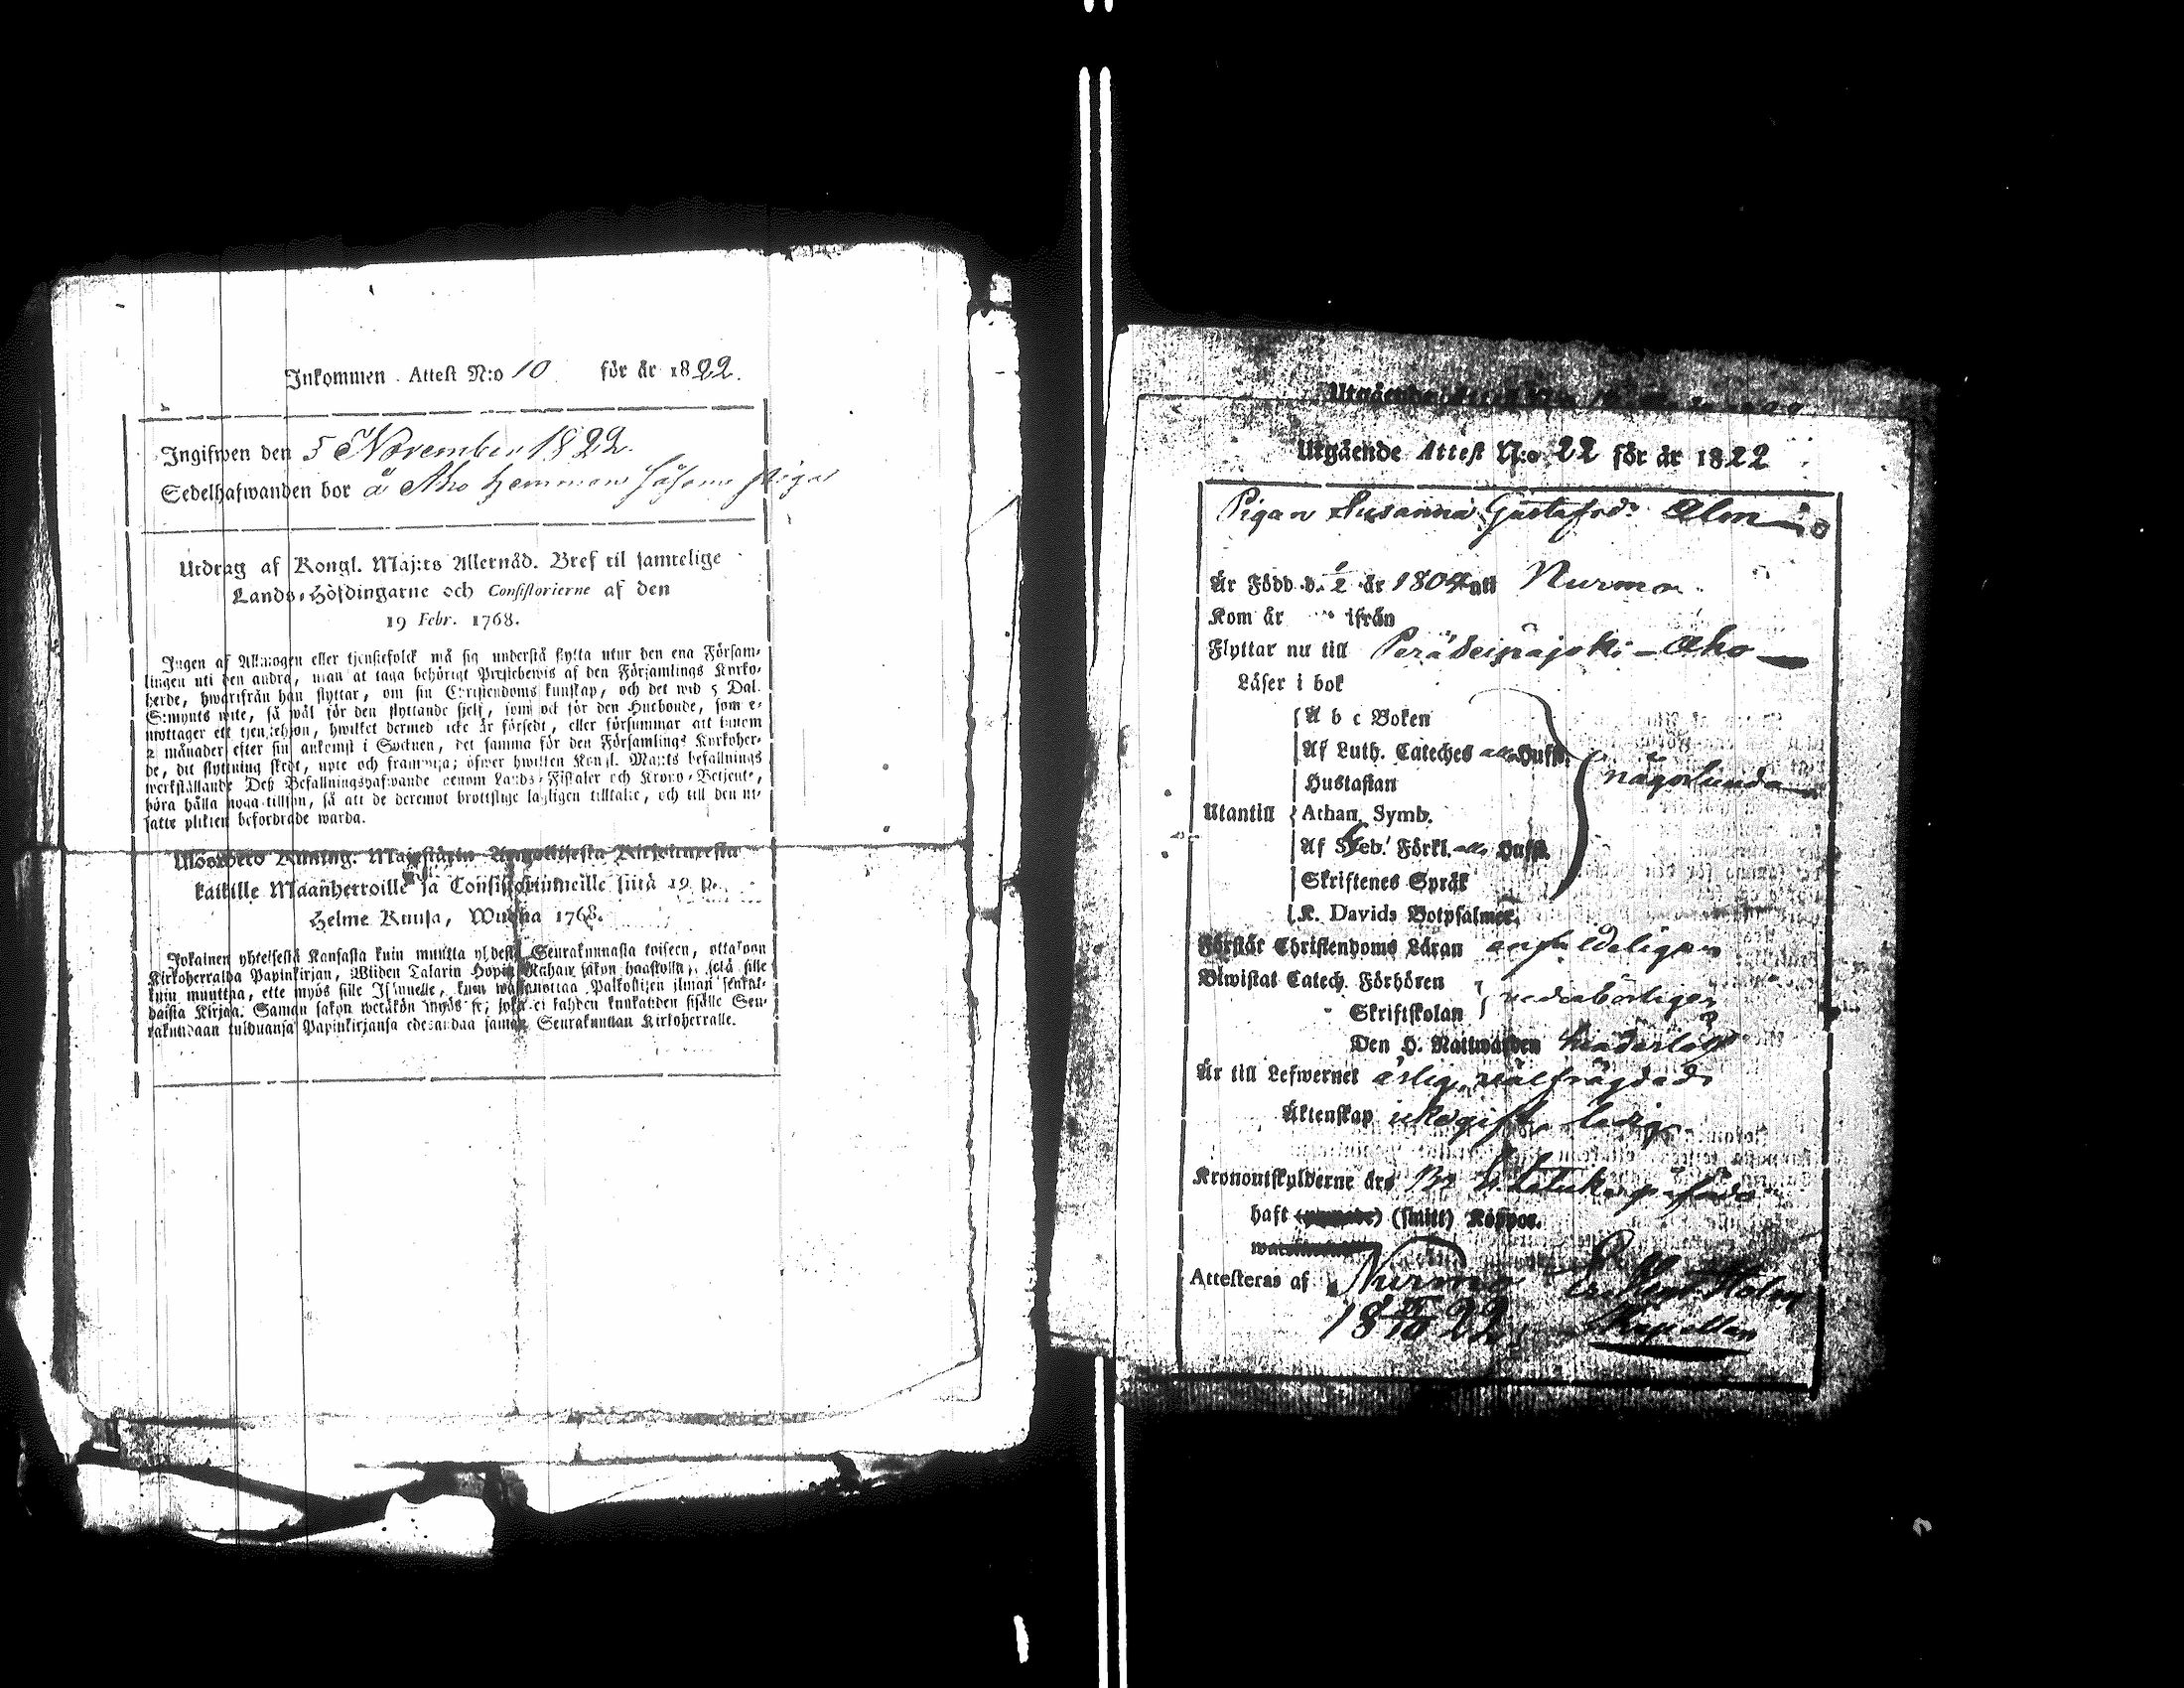 Inkommen Attest N:o 10 för år 1822.
Ingifwen den 5 November 1822.
Sedelhafwanden bor å Aho hemman såsom piga
Utdrag af Kongl. Maj:ts Allernåd. Bref til samtelige
Lands-Höfdingarne och Consistorierne af den
19 Febr. 1768.
Ingen af Allmogen eller tjenstefolck må sig understå flytta utur den ena Försam-
lingen uti den andra, utan at taga behörigt Prestebewis af den Församlings Kyrko-
herde, hwarifrån han flyttar, om sin Christendoms kunskap, och det wid 5 Dal.
S:mynts wite, så wäl för den flyttande sjelf, som ock för den Husbonde, som e-
mottager ett tjenstehjon, hwilket dermed icke är försedt, eller försummar att innom
2 månader efter sin ankomst i Socknen, det samma för den Församlings Kyrkoher-
de, dit flyttning skedt, upte och framwisa; öfwer hwilken Kongl. Maj:ts befallnings
werkställande Deß Befallningshafwande genom Lands-Fiskaler och Krono-Betjente,
böra hålla noga tillsyn, så att de deremot brottslige lagligen tilltalte, och till den ut-
satte plikten befordrade warda.
Uloswoto Kuning. Majestätin Armollisesta Kirjoituxesta
kaikille Maanherroille ja Consistoriumeille siitä 19 p.
Helme Kuusa, Wuonna 1768.
Jokainen yhteisestä Kansasta kuin muutta yhdestä Seurakunnasta toiseen, ottakoon
Kirkoherralda Papinkirjan, Wiiden Talarin Hopia Rahan sakon haastolla, sekä sille
kuin muuttaa, ette myös sille Isännelle, kuin wastanottaa Palkollisen ilman senkal-
daista Kirjaa. Saman sakon wetäkön myös se, joka ei kahden kuukauden sisälle Seu-
rakundaan tulduansa Papinkirjansa edesandaa saman Seurakunnan Kirkoherralle.
Utgående Attest N:o 22 för år 1822
Pigan Susanna Gustafsd:r Alm
Är Född d. 1/2 år 1804 uti Nurmo
Kom år ifrån
Flyttar nu till Peräseinäjoki - Aho
Läser i bok
A b c Boken
Af Luth. Cateches alla Hufst.
någorlunda
Hustaflan
Utantill Athan. Symb.
Af Sveb. Förkl. alla Hufst.
Skriftenes Språk
K. Davids Botpsalmer.
Förstår Christendoms Läran enfaldeligen
Biwistat Catech. Förhören
Skriftskolan
vederbörligen
Den H. Nattwarden
Är till Lefwernet ärlig, välfrägdad
Äktenskap icke gift, ledig
Kronoutskylderne års
haft (smitt) Koppor.
Attesteras af Nurmo
18 5/10 22
Holm
Kapellan